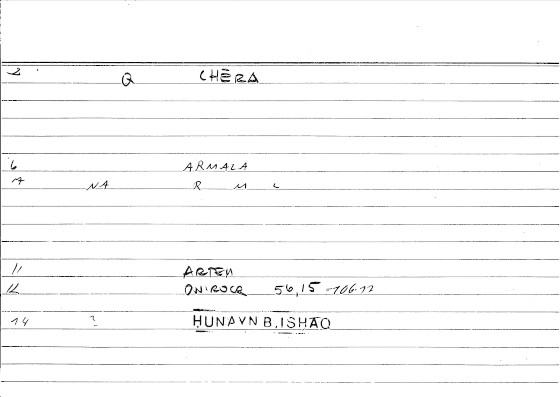 2 Q CHĒRA
6 ARMALA
7 NA R M L
11 ARTEM
12 ONIROCR 56,15-106.12
14 ? HUNAYN B. ISHAQ